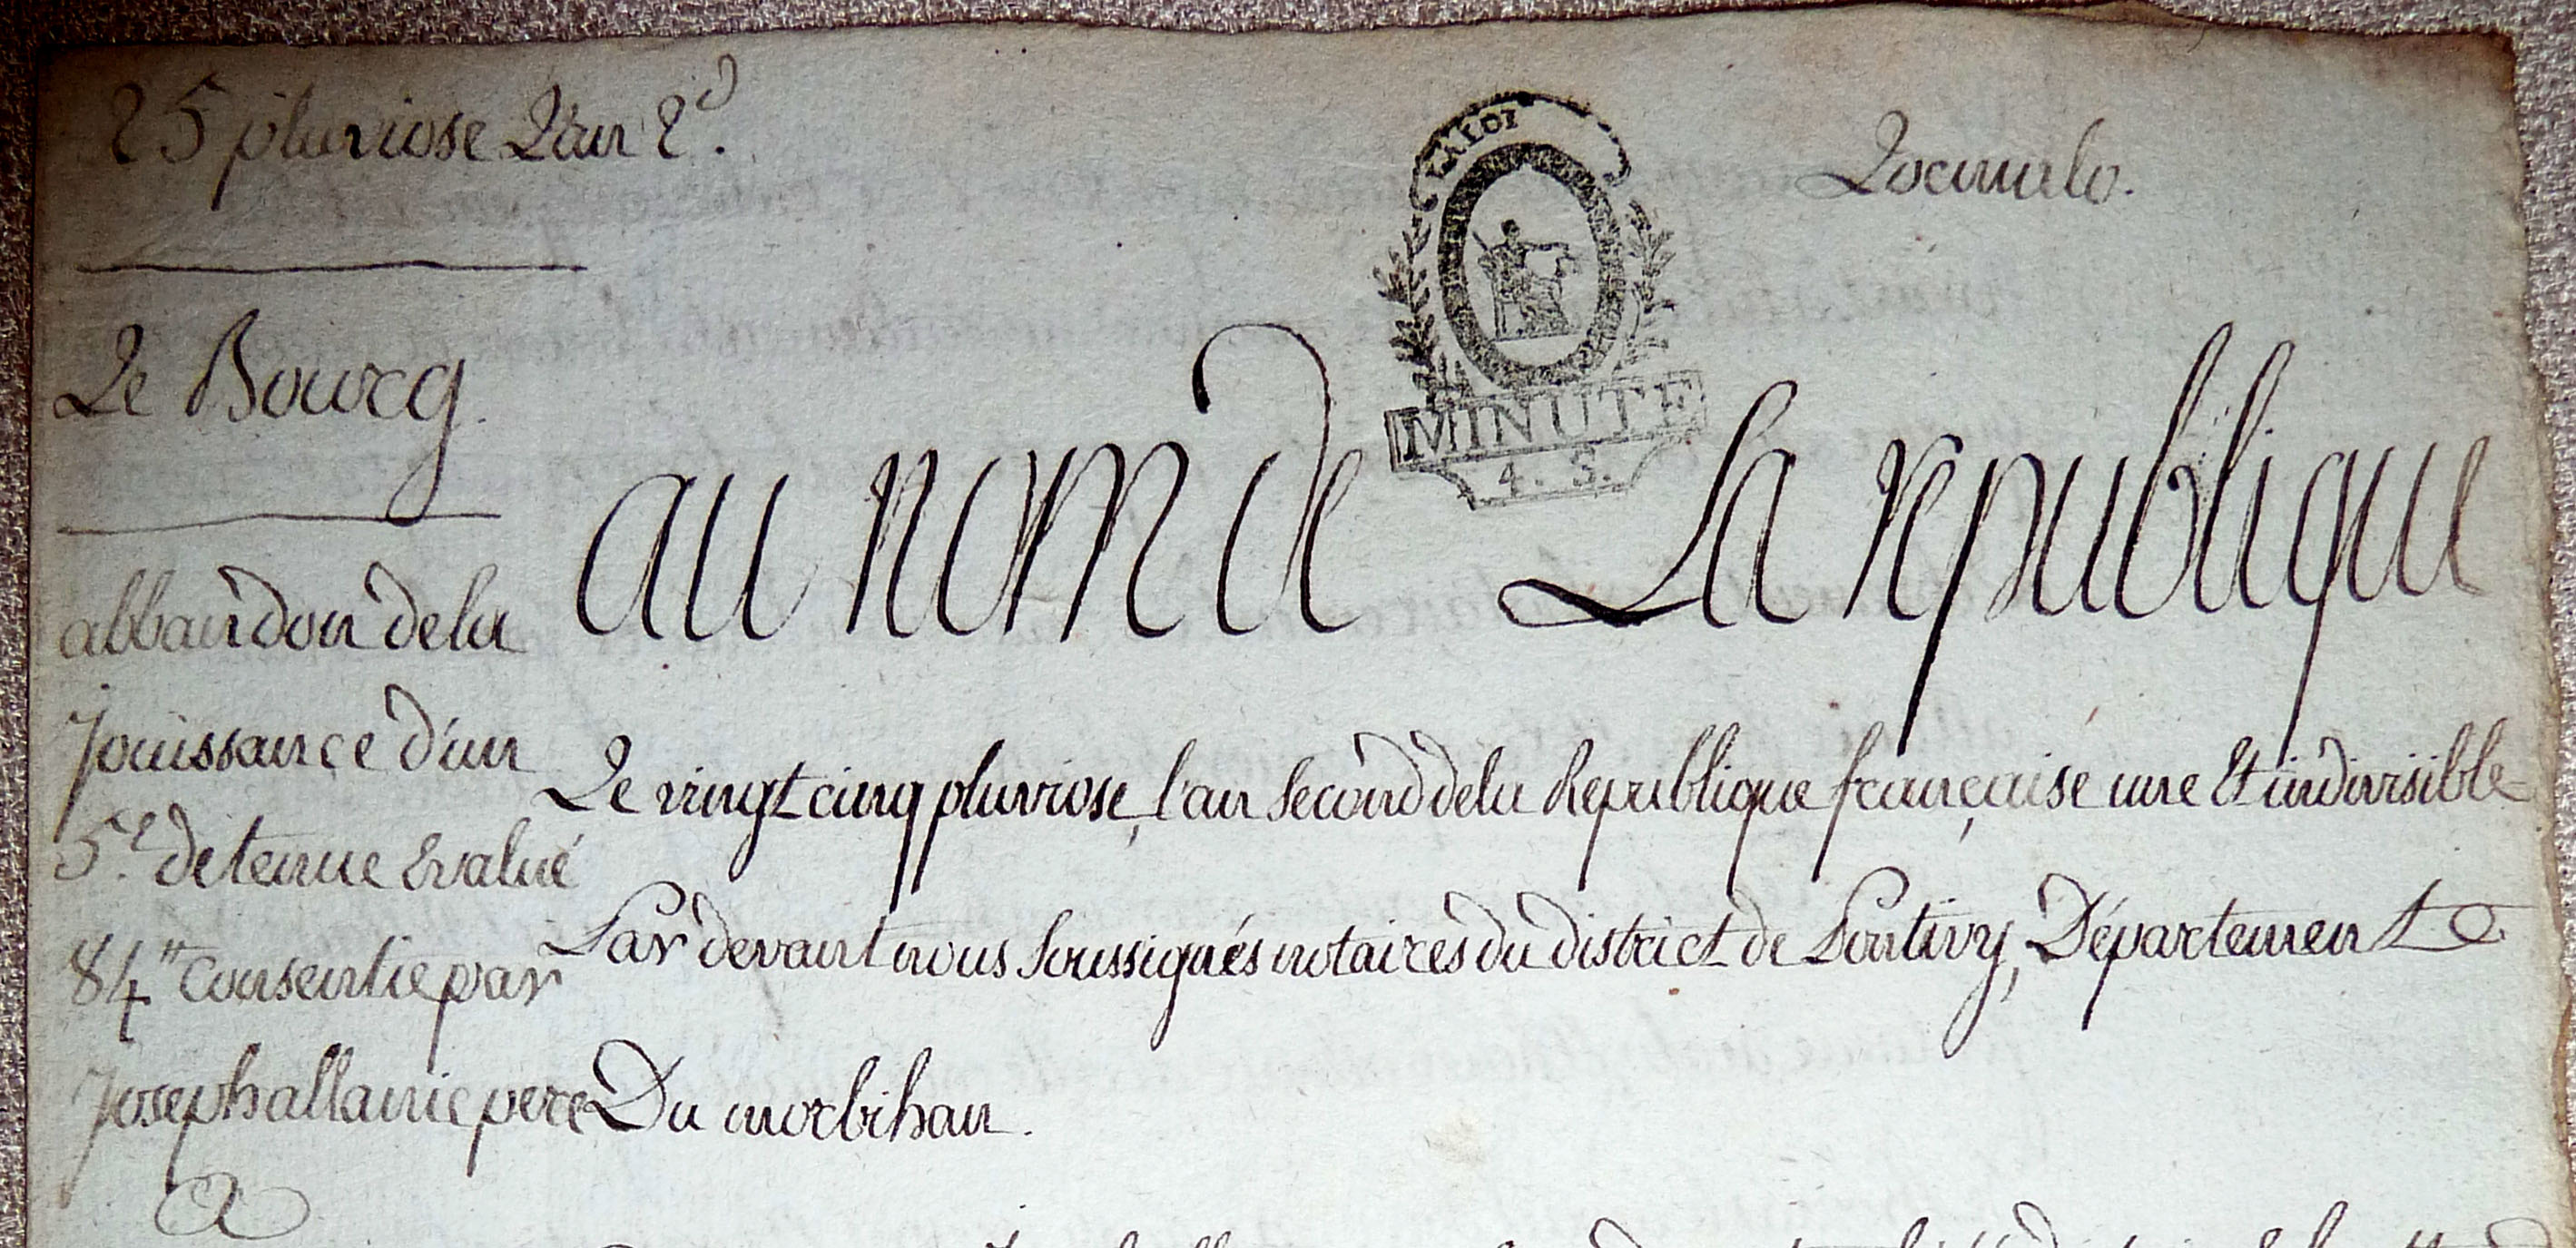 25 pluviose L'an 2d.
Locmalo.
LA LOI
MINUTE
4. S.
Le Bourg.
au nom de La republique
abbandon dela
Jouissance d'un
5e. de tenue Evalué
84tt Consentie par
Joseph allanic pere
a
Le vingt cinq pluviose, l'an Second dela Republique française une Et indivisible
Par devant nous Soussignés notaires du district de Pontivy, Département
Du morbihan.